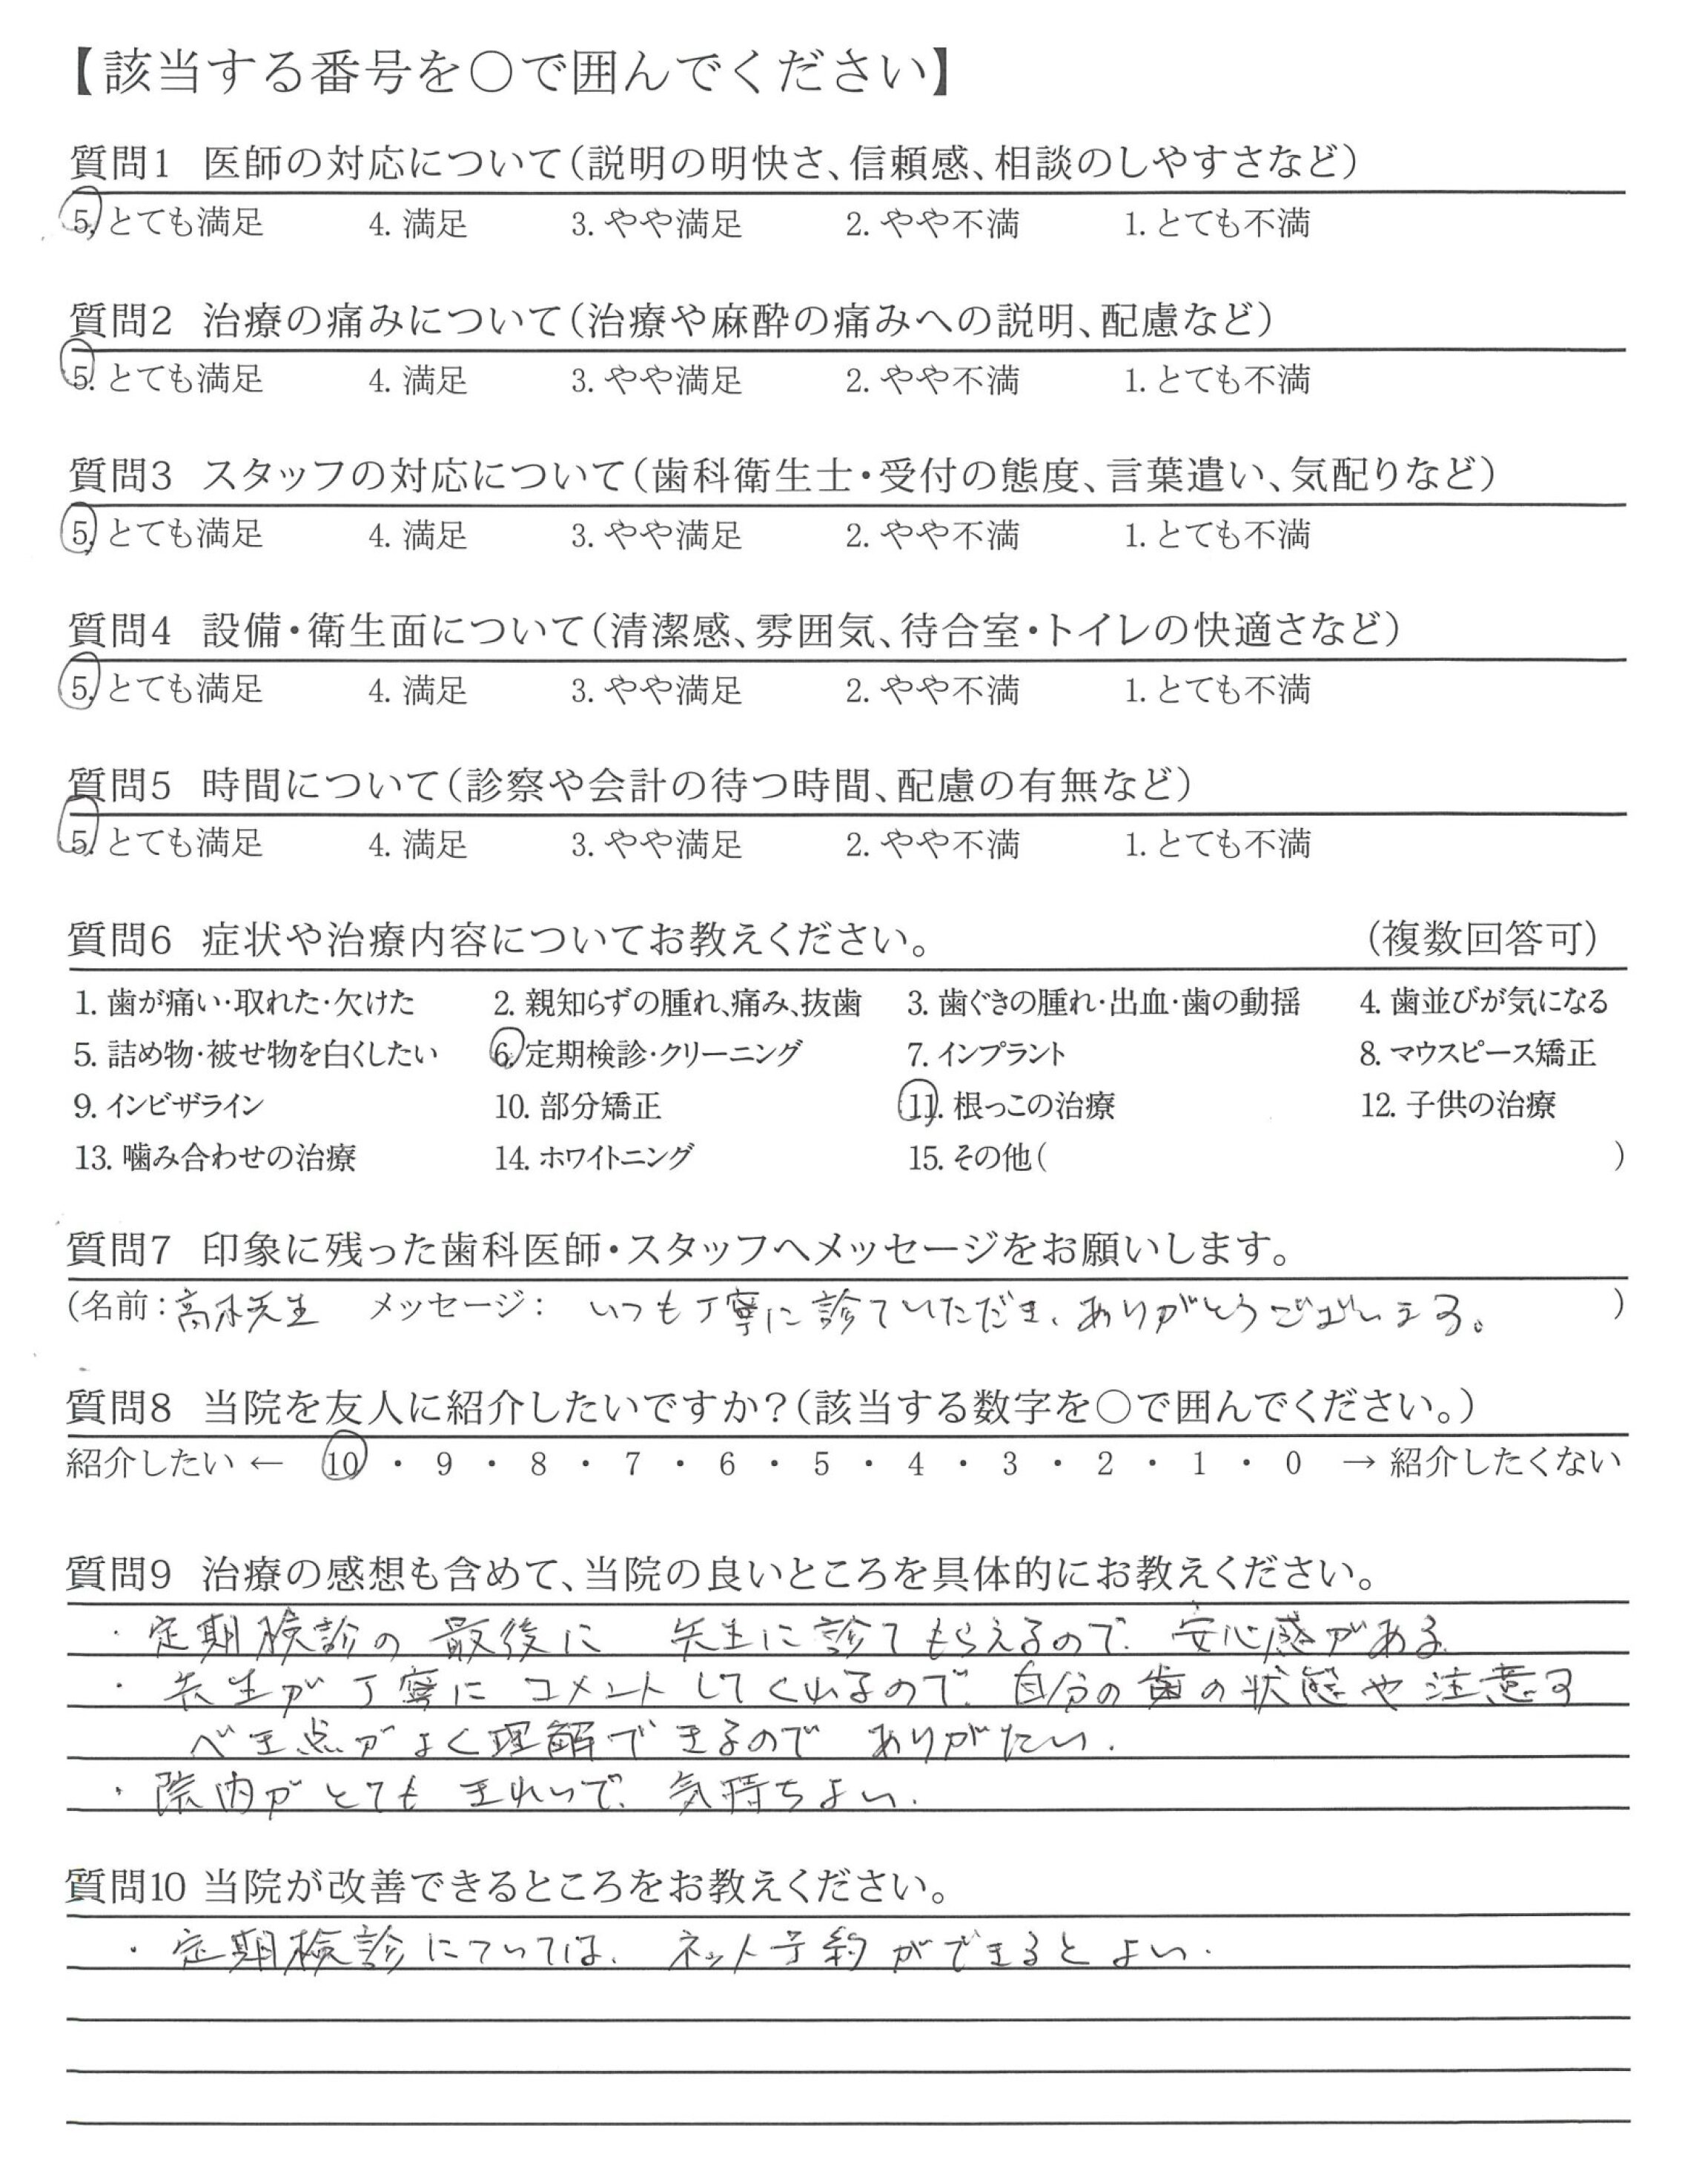 【該当する番号を○で囲んでください】
質問1 医師の対応について(説明の明快さ、信頼感、相談のしやすさなど)
5. とても満足 4. 満足 3. やや満足 2. やや不満 1. とても不満
質問2 治療の痛みについて(治療や麻酔の痛みへの説明、配慮など)
5. とても満足 4. 満足 3. やや満足 2. やや不満 1. とても不満
質問3 スタッフの対応について(歯科衛生士・受付の態度、言葉遣い、気配りなど)
5. とても満足 4. 満足 3. やや満足 2. やや不満 1. とても不満
質問4 設備・衛生面について(清潔感、雰囲気、待合室・トイレの快適さなど)
5. とても満足 4. 満足 3. やや満足 2. やや不満 1. とても不満
質問5 時間について(診察や会計の待つ時間、配慮の有無など)
5. とても満足 4. 満足 3. やや満足 2. やや不満 1. とても不満
質問6 症状や治療内容についてお教えください。 (複数回答可)
1. 歯が痛い・取れた・欠けた 2. 親知らずの腫れ、痛み、抜歯 3. 歯ぐきの腫れ・出血・歯の動揺 4. 歯並びが気になる
5. 詰め物・被せ物を白くしたい 6. 定期検診・クリーニング 7. インプラント 8. マウスピース矯正
9. インビザライン 10. 部分矯正 11. 根っこの治療 12. 子供の治療
13. 噛み合わせの治療 14. ホワイトニング 15. その他( )
質問7 印象に残った歯科医師・スタッフへメッセージをお願いします。
(名前:高木先生 メッセージ: いつも丁寧に診ていただき、ありがとうございます。 )
質問8 当院を友人に紹介したいですか?(該当する数字を○で囲んでください。)
紹介したい ← 10 ・ 9 ・ 8 ・ 7 ・ 6 ・ 5 ・ 4 ・ 3 ・ 2 ・ 1 ・ 0 → 紹介したくない
質問9 治療の感想も含めて、当院の良いところを具体的にお教えください。
・定期検診の最後に 先生に診てもらえるので、安心感がある
・先生が丁寧にコメントしてくれるので、自分の歯の状態や注意す
べき点がよく理解できるので ありがたい.
・院内がとても きれいで、気持ちよい.
質問10 当院が改善できるところをお教えください。
・定期検診については、ネット予約ができるとよい.